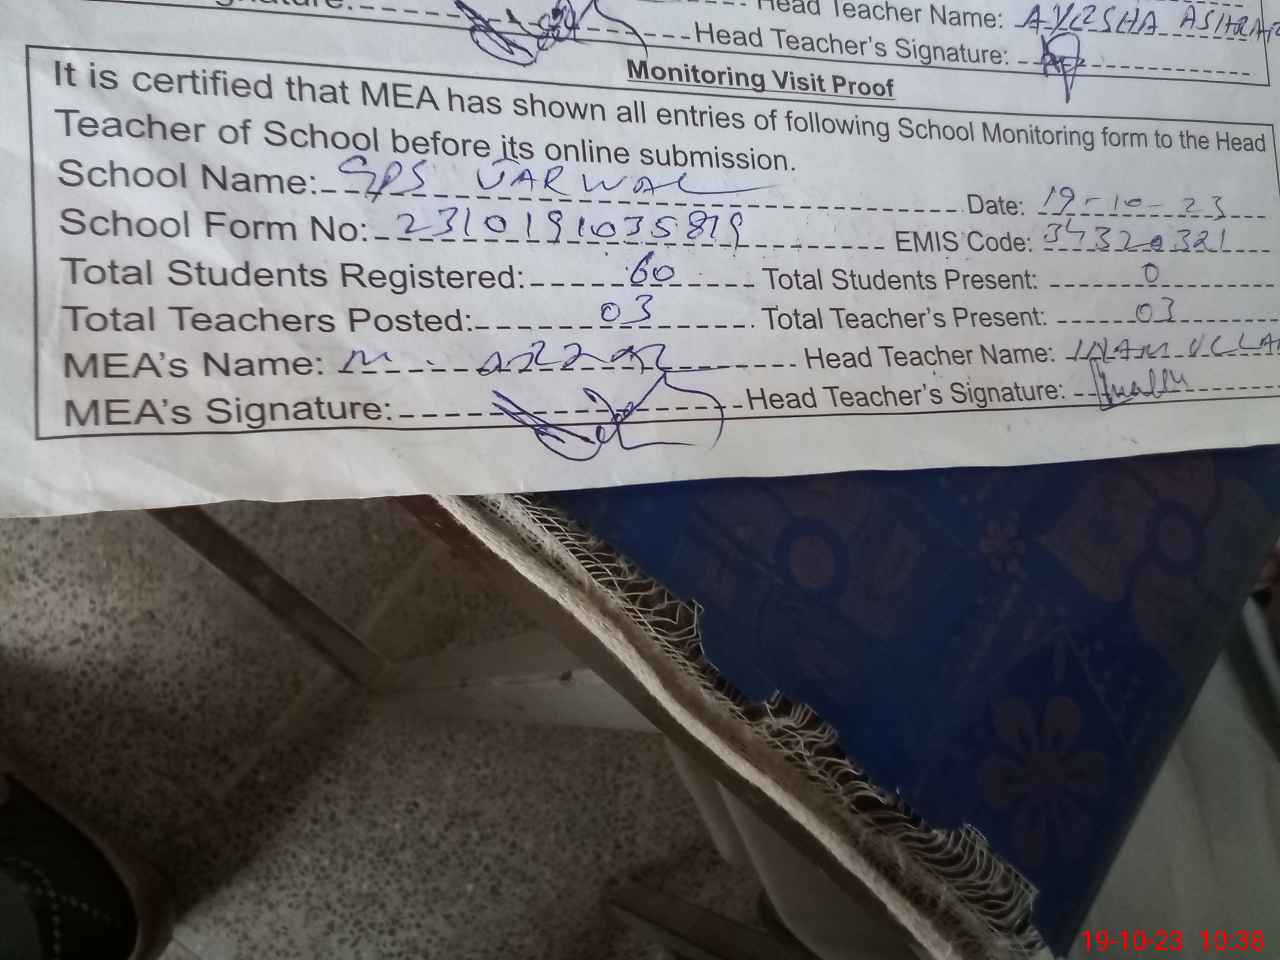 Head Teacher Name: AYESHA ASHRAF
Head Teacher's Signature:
Monitoring Visit Proof
It is certified that MEA has shown all entries of following School Monitoring form to the Head
Teacher of School before its online submission.
School Name: GPS JARWAL Date: 19-10-23
School Form No: 2310191035819 EMIS Code: 34320321
Total Students Registered: 60 Total Students Present: 0
Total Teachers Posted: 03 Total Teacher's Present: 03
MEA's Name: M. Head Teacher Name:
MEA's Signature: Head Teacher's Signature:
19-10-23 10:38